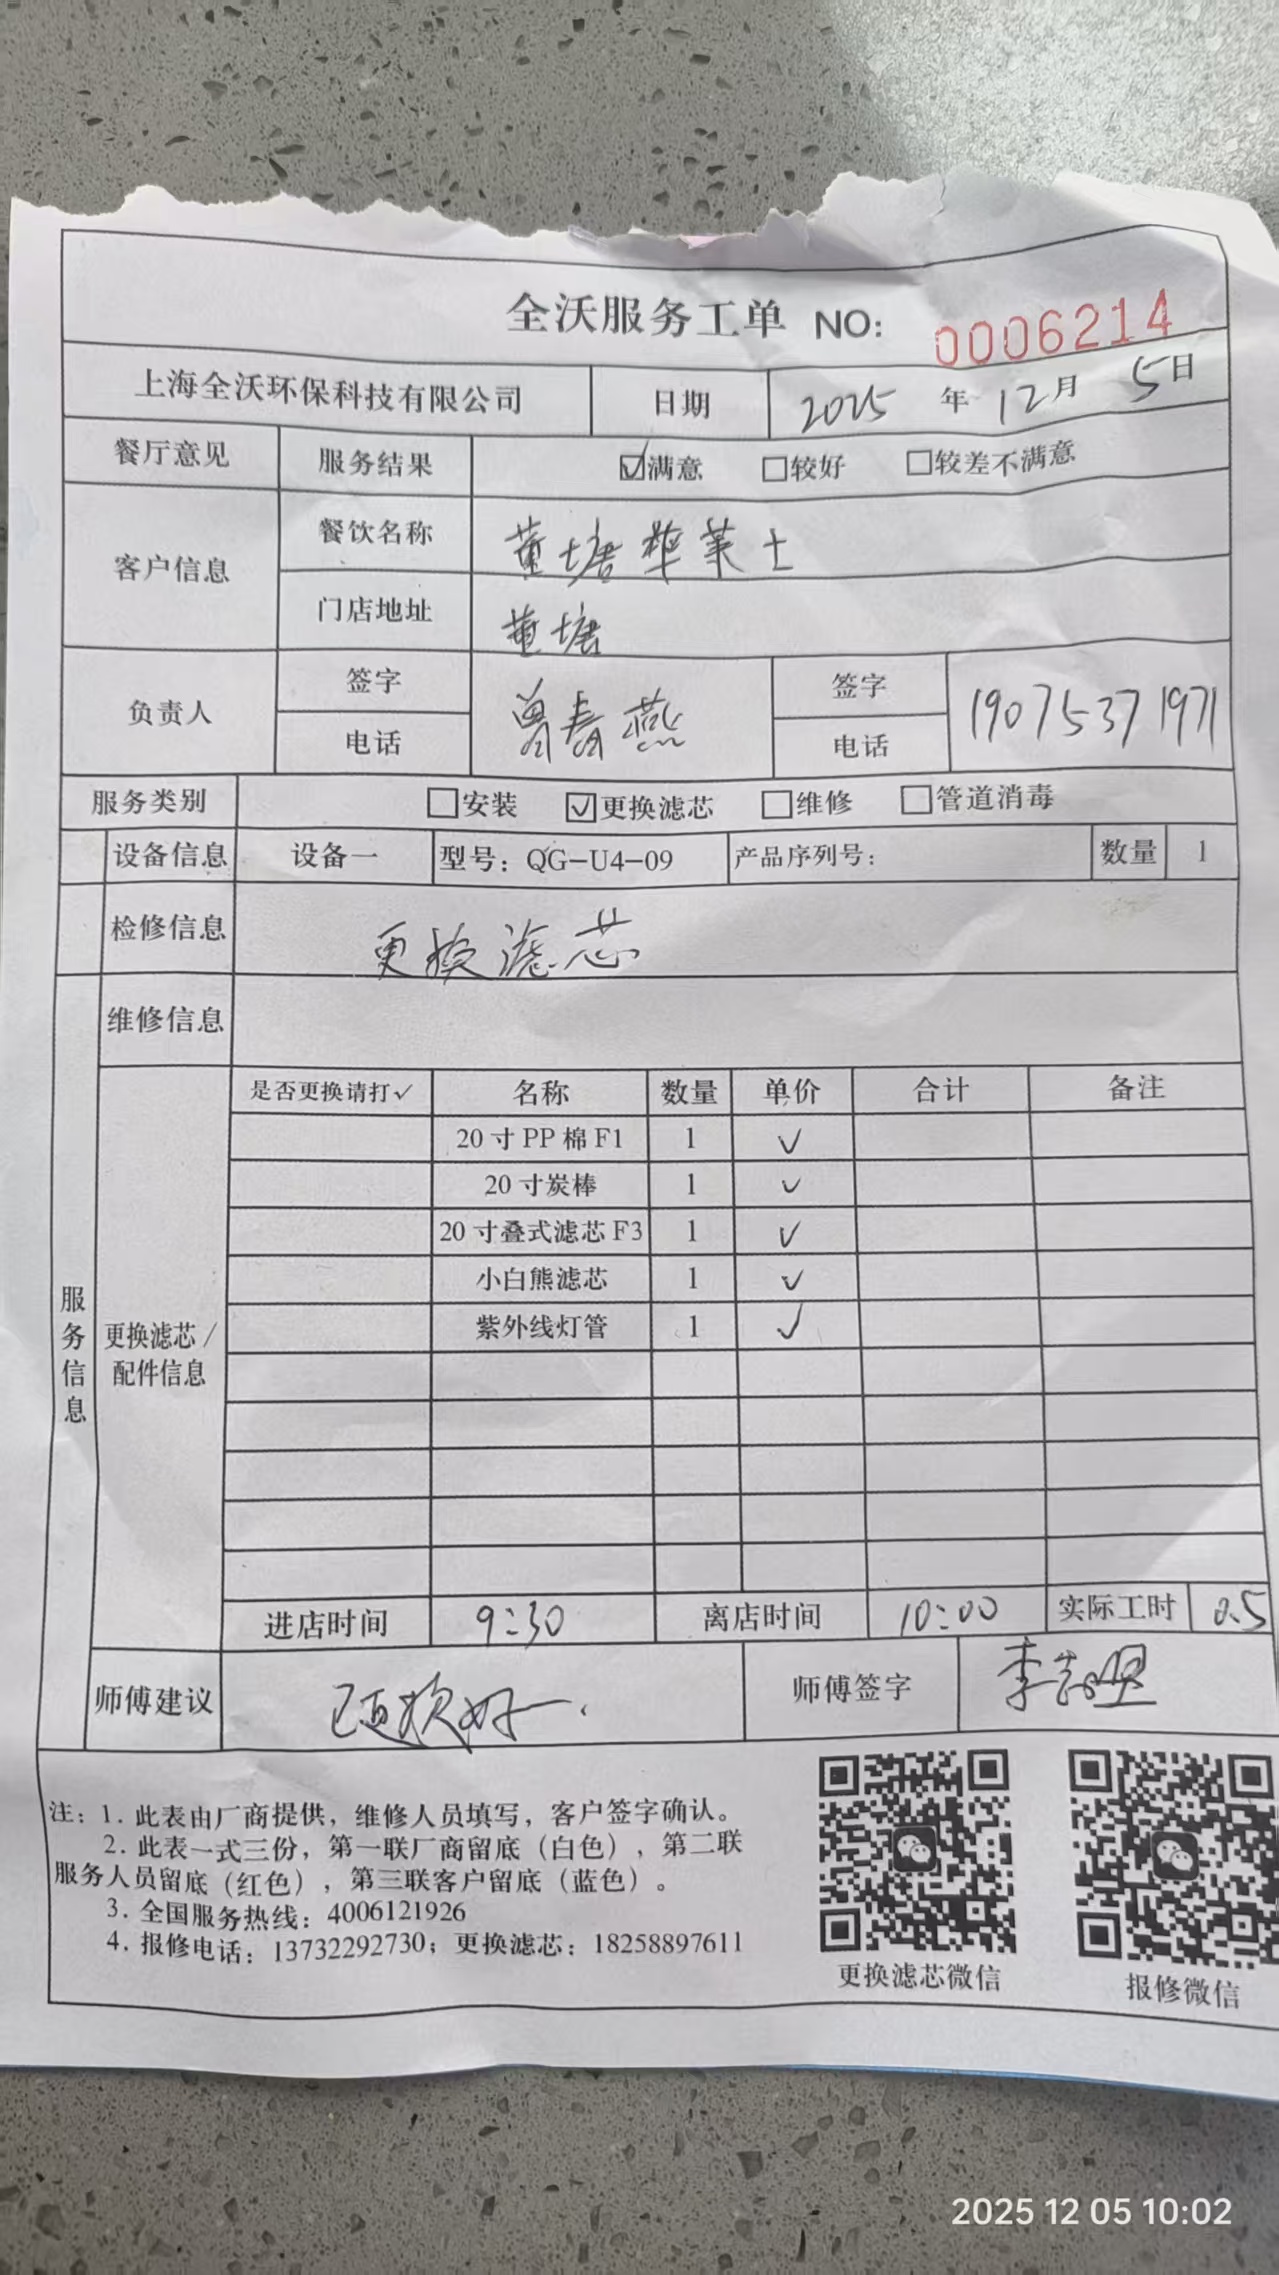 全沃服务工单 NO: 0006214
上海全沃环保科技有限公司 日期 2025 年 12 月 5 日
餐厅意见 服务结果 ☑满意 □较好 □较差不满意
客户信息 餐饮名称 董塘华莱士
门店地址 董塘
负责人 签字 电话 曾春燕 签字 电话 19075371971
服务类别 □安装 ☑更换滤芯 □维修 □管道消毒
设备信息 设备一 型号：QG-U4-09 产品序列号： 数量 1
检修信息 更换滤芯
维修信息
服务信息
更换滤芯/配件信息
是否更换请打✓ 名称 数量 单价 合计 备注
20寸PP棉F1 1 ✓
20寸炭棒 1 ✓
20寸叠式滤芯F3 1 ✓
小白熊滤芯 1 ✓
紫外线灯管 1 ✓
进店时间 9:30 离店时间 10:00 实际工时 0.5
师傅建议 已更换好. 师傅签字
注：1. 此表由厂商提供，维修人员填写，客户签字确认。
2. 此表一式三份，第一联厂商留底（白色），第二联
服务人员留底（红色），第三联客户留底（蓝色）。
3. 全国服务热线：4006121926
4. 报修电话：13732292730；更换滤芯：18258897611
更换滤芯微信 报修微信
2025 12 05 10:02